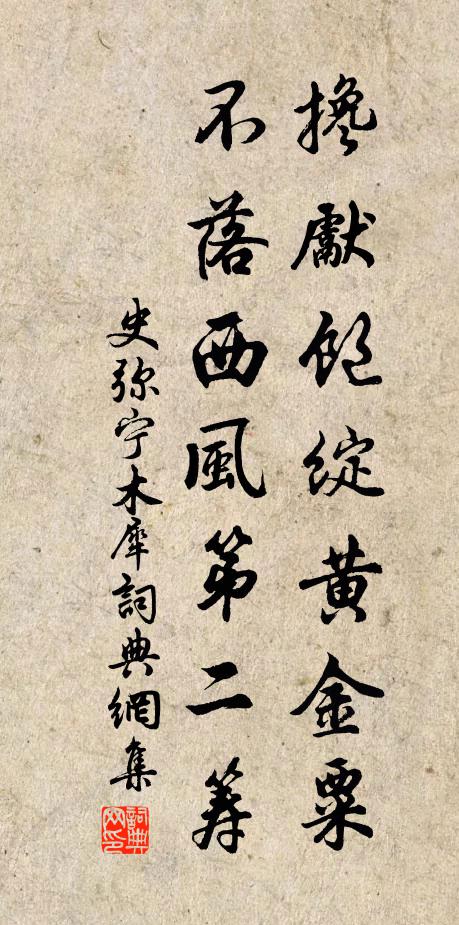 搀獻飽綻黃金粟
不落西風第二筹
史弥宁木犀詞典網集
詞典網印